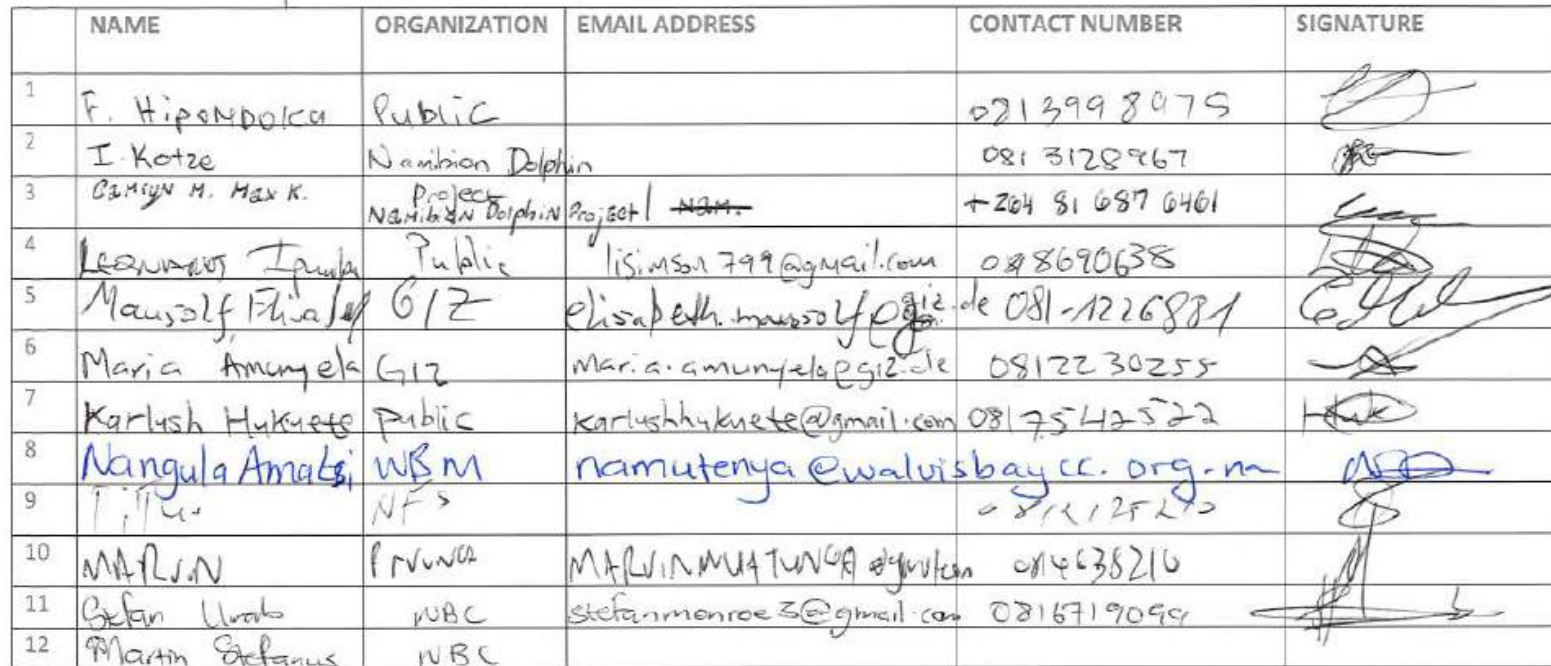 NAME ORGANIZATION EMAIL ADDRESS CONTACT NUMBER SIGNATURE
1 F. HIPONDOKA Public 0813998975
2 I. Kotze Namibian Dolphin Project 081 3128967
3 M. Max K. NAMIBIAN DOLPHIN Project +264 81 687 6461
4 Public lisimson799@gmail.com 0818690638
5 Mausolf GIZ elisabeth.mausolf@giz.de 081-1226881
6 Maria Amunyela GIZ maria.amunyela@giz.de 0812230255
7 Karlush Hukuete Public karlushhukuete@gmail.com 0817542522
8 Nangula Amatsi WBM namutenya@walvisbaycc.org.na
9 NFS
10 MARVIN
11 Stefan NBC stefanmonroe3@gmail.com 0816719099
12 Martin Stefanus NBC